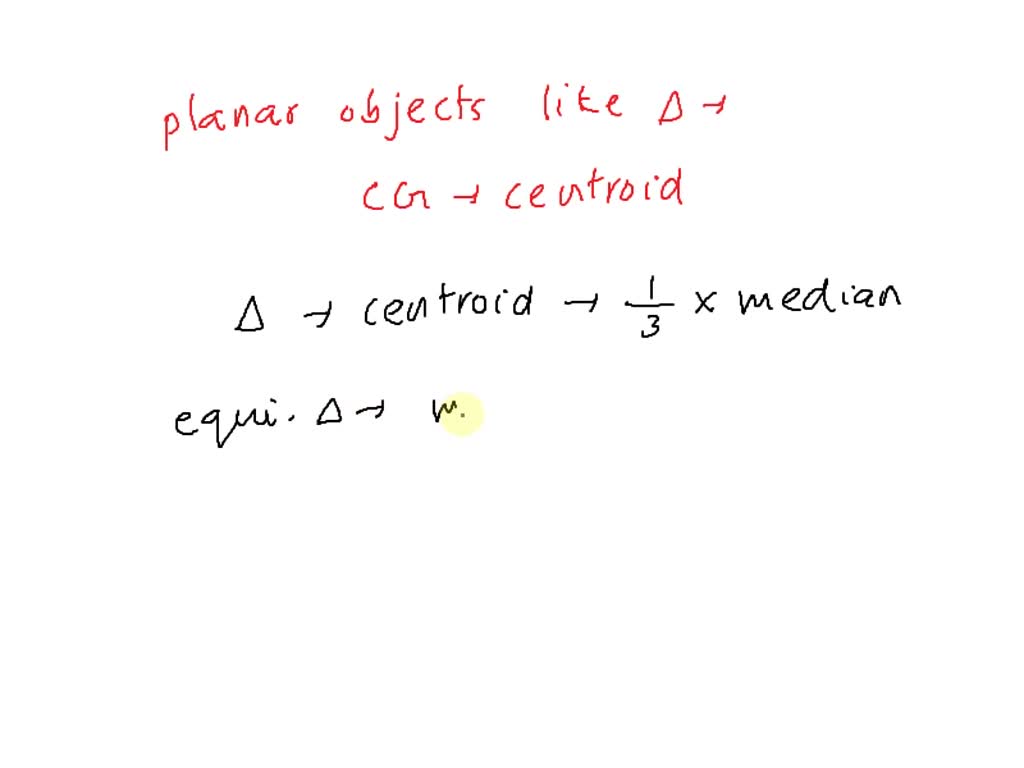 planar objects like Δ →
CG → centroid
Δ → centroid → 1/3 × median
equi. Δ →